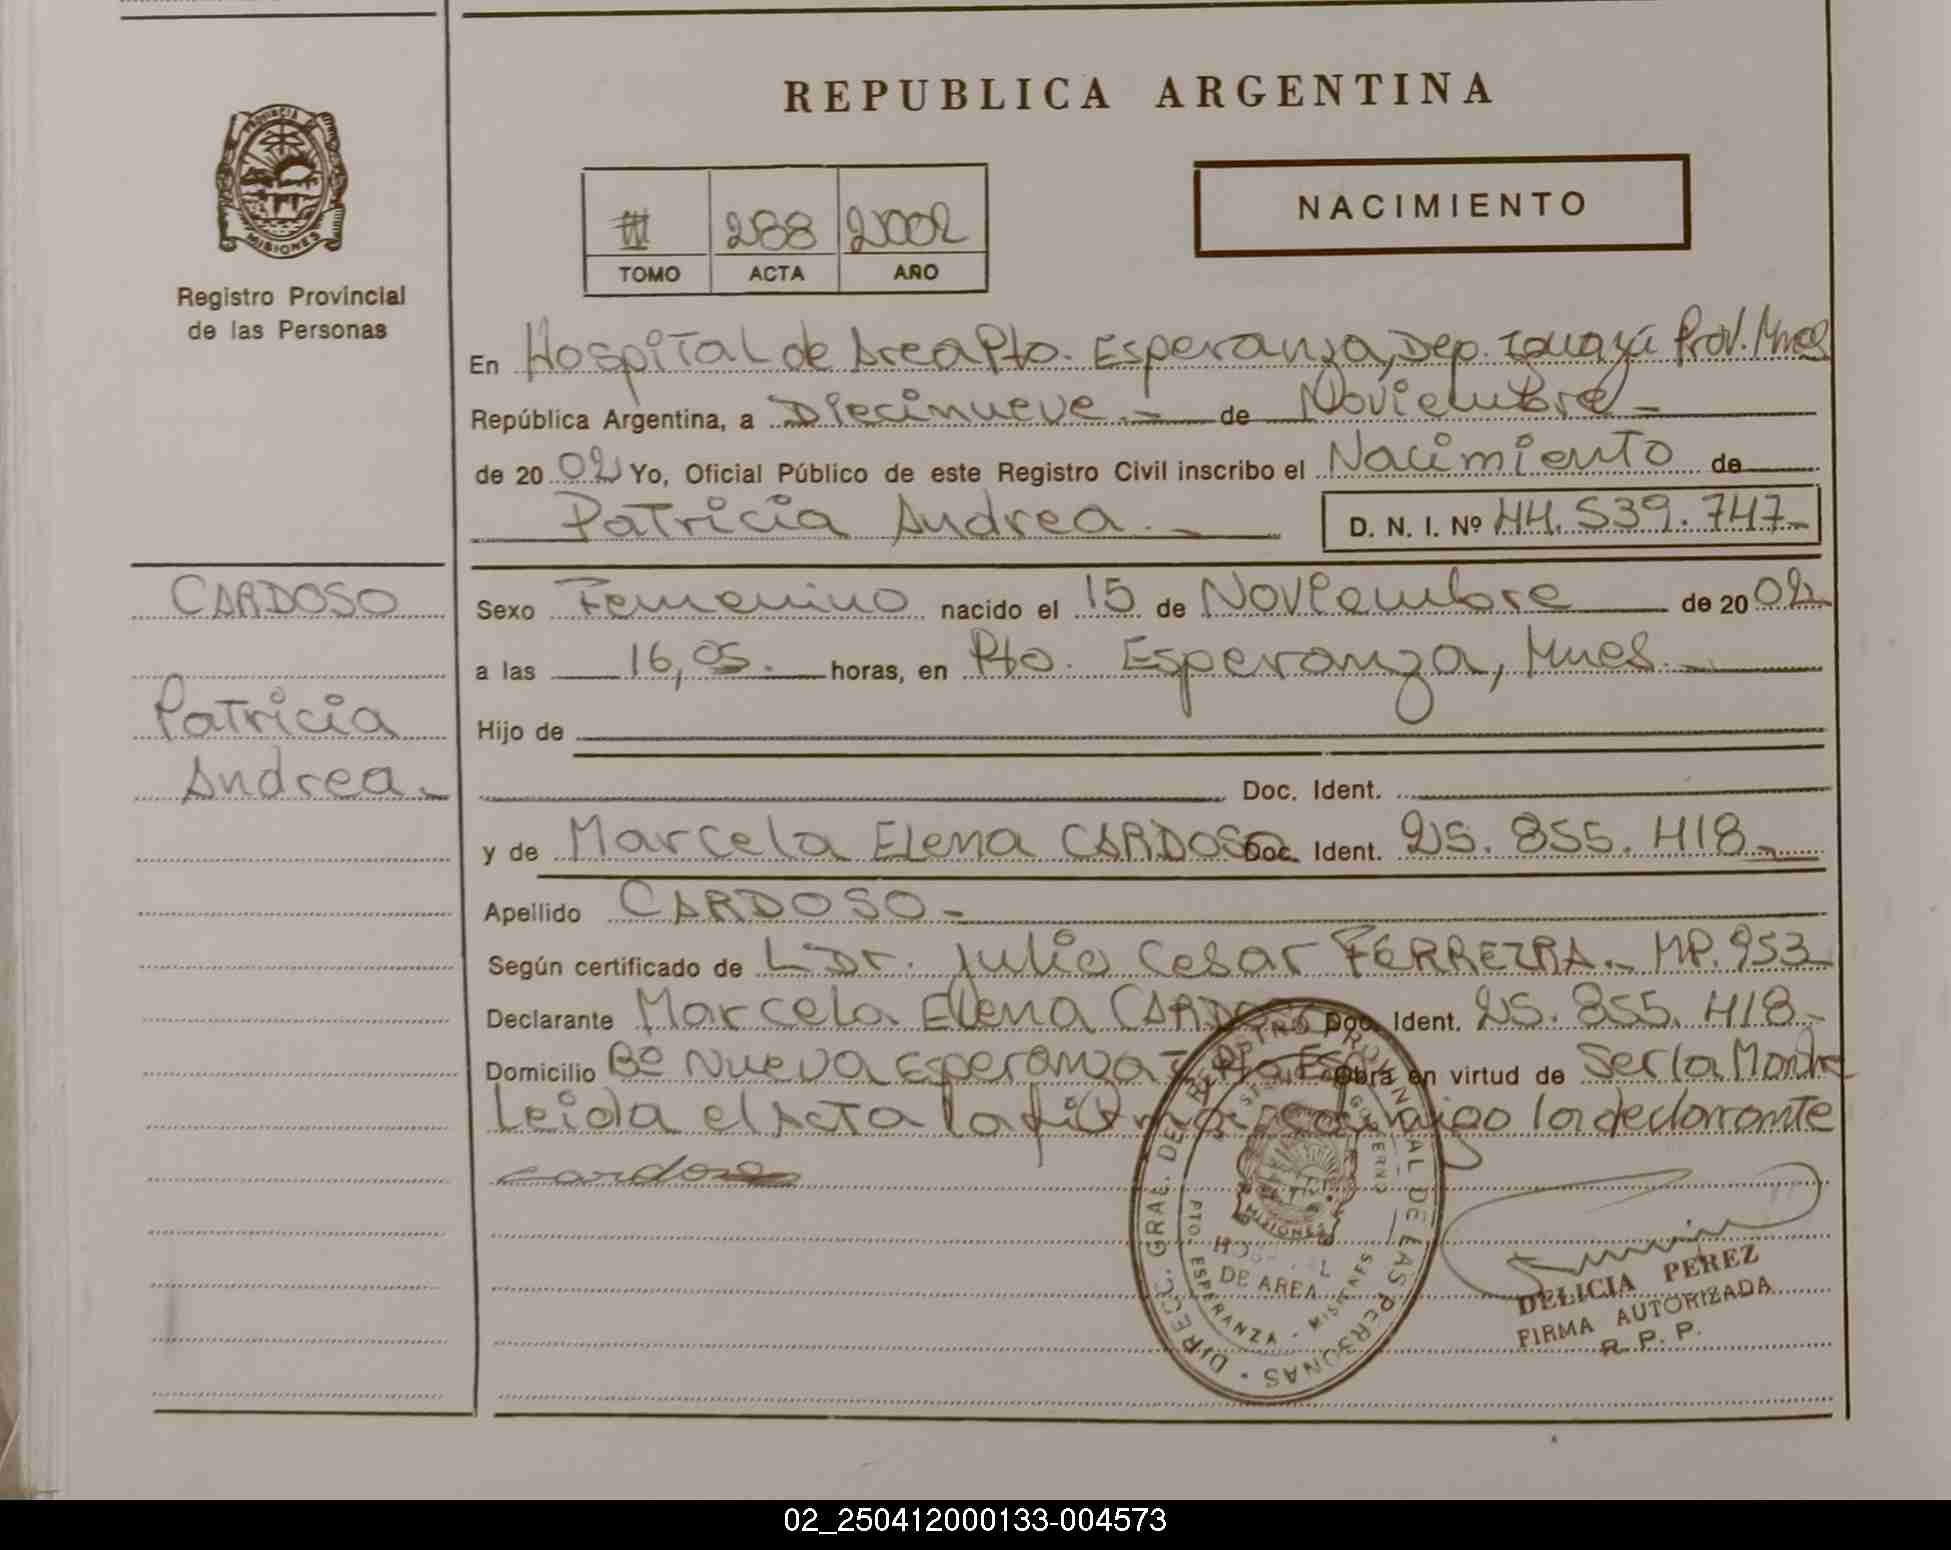 REPUBLICA ARGENTINA
PROVINCIA DE
MISIONES
Registro Provincial
de las Personas
288 2002
TOMO ACTA AÑO
NACIMIENTO
En Hospital de Area Pto. Esperanza, Dep. Iguazú Prov. Mnes
República Argentina, a Diecinueve.- de Noviembre-
de 20 02 Yo, Oficial Público de este Registro Civil inscribo el Nacimiento de
Patricia Andrea.- D. N. I. Nº 44.539.747-
CARDOSO
Patricia
Andrea.-
Sexo Femenino nacido el 15 de Noviembre de 20 02
a las 16,05. horas, en Pto. Esperanza, Mnes.-
Hijo de
Doc. Ident.
y de Marcela Elena CARDOSO Doc. Ident. 25.855.418-
Apellido CARDOSO-
Según certificado de L Dr. Julio Cesar FERREIRA.- MP.953
Declarante Marcela Elena CARDOSO Doc. Ident. 25.855.418-
Domicilio Bº Nueva Esperanza - Pto Esp. Obra en virtud de Ser la Madre
Leida el Acta la firma conmigo la declarante
cardoso
DIRECC. GRAL. DEL REGISTRO PROVINCIAL DE LAS PERSONAS
MISIONES
DE AREA
PTO. ESPERANZA - MISIONES
DELICIA PEREZ
FIRMA AUTORIZADA
R. P. P.
02_250412000133-004573